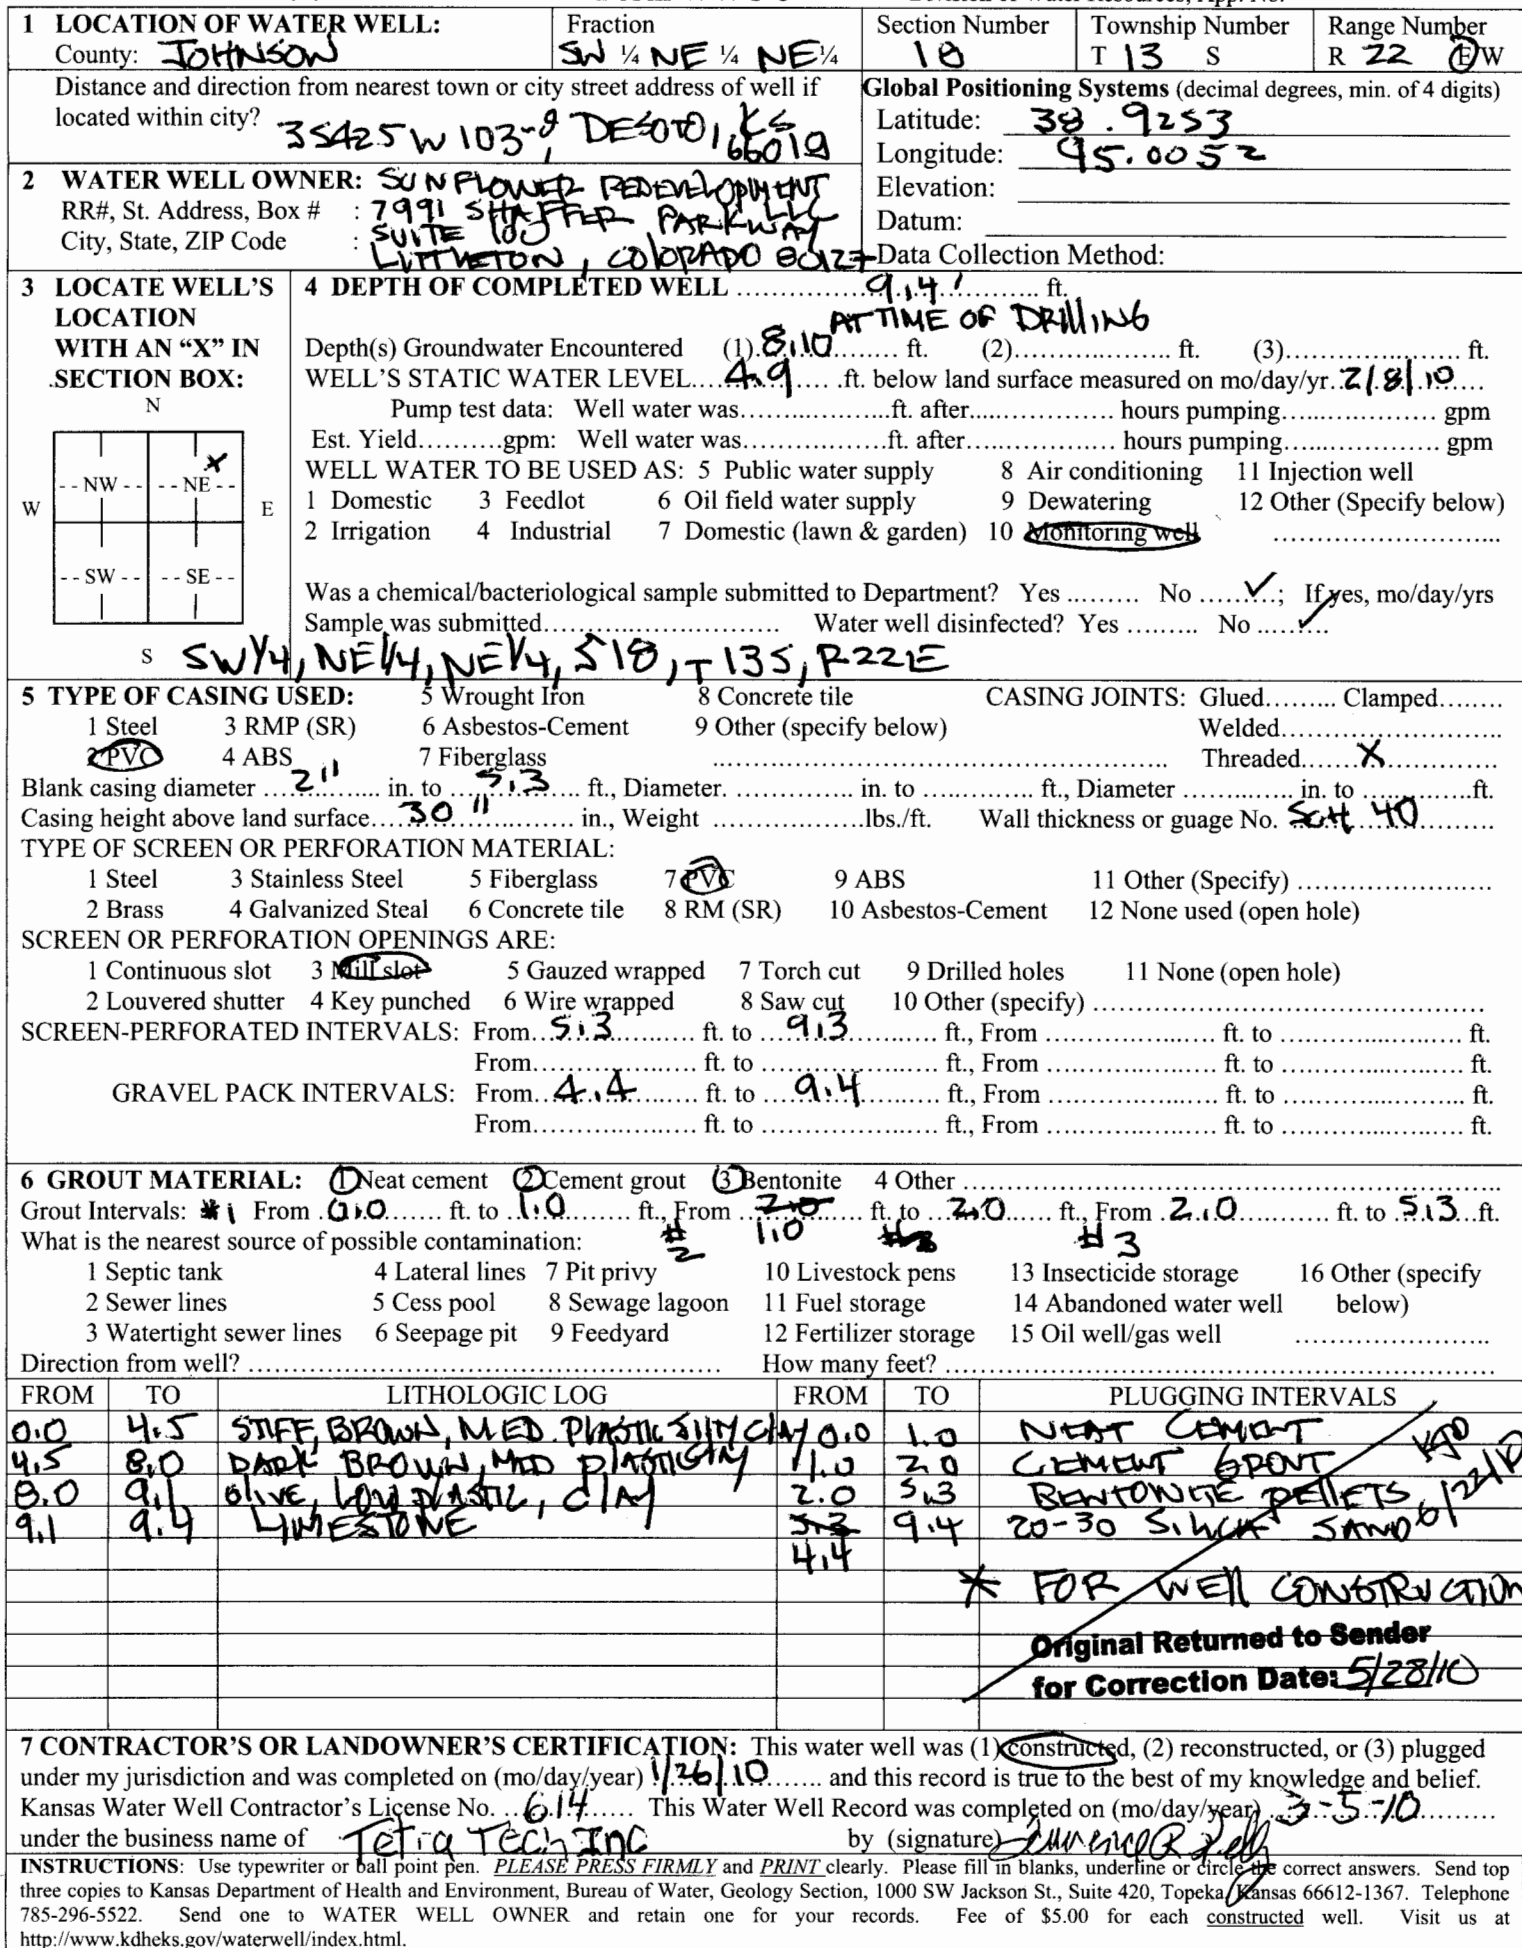 1 LOCATION OF WATER WELL: Fraction Section Number Township Number Range Number
County: JOHNSON SW ¼ NE ¼ NE ¼ 18 T 13 S R 22 E W
Distance and direction from nearest town or city street address of well if located within city? 35425 W 103rd, DESOTO, KS 66019
Global Positioning Systems (decimal degrees, min. of 4 digits)
Latitude: 38.9253
Longitude: 95.0052
Elevation:
Datum:
Data Collection Method:
2 WATER WELL OWNER: SUNFLOWER REDEVELOPMENT LLC
RR#, St. Address, Box # : 7991 SHAFFER PARKWAY
City, State, ZIP Code : SUITE 100
LITTLETON, COLORADO 80127
3 LOCATE WELL'S
LOCATION
WITH AN "X" IN
SECTION BOX:
N
X
- - NW - - - - NE - -
W E
- - SW - - - - SE - -
S
4 DEPTH OF COMPLETED WELL 9.4' ft.
AT TIME OF DRILLING
Depth(s) Groundwater Encountered (1) 8.10 ft. (2) ft. (3) ft.
WELL'S STATIC WATER LEVEL 4.9 ft. below land surface measured on mo/day/yr 2/8/10
Pump test data: Well water was ft. after hours pumping gpm
Est. Yield gpm: Well water was ft. after hours pumping gpm
WELL WATER TO BE USED AS: 5 Public water supply 8 Air conditioning 11 Injection well
1 Domestic 3 Feedlot 6 Oil field water supply 9 Dewatering 12 Other (Specify below)
2 Irrigation 4 Industrial 7 Domestic (lawn & garden) 10 Monitoring well
Was a chemical/bacteriological sample submitted to Department? Yes ........ No ✓; If yes, mo/day/yrs
Sample was submitted Water well disinfected? Yes ........ No ✓
SW1/4, NE1/4, NE1/4, S18, T13S, R22E
5 TYPE OF CASING USED: 5 Wrought Iron 8 Concrete tile CASING JOINTS: Glued........ Clamped........
1 Steel 3 RMP (SR) 6 Asbestos-Cement 9 Other (specify below) Welded
2 PVC 4 ABS 7 Fiberglass Threaded X
Blank casing diameter 2" in. to 5.3 ft., Diameter in. to ft., Diameter in. to ft.
Casing height above land surface 30" in., Weight lbs./ft. Wall thickness or guage No. SCH 40
TYPE OF SCREEN OR PERFORATION MATERIAL:
1 Steel 3 Stainless Steel 5 Fiberglass 7 PVC 9 ABS 11 Other (Specify)
2 Brass 4 Galvanized Steal 6 Concrete tile 8 RM (SR) 10 Asbestos-Cement 12 None used (open hole)
SCREEN OR PERFORATION OPENINGS ARE:
1 Continuous slot 3 Mill slot 5 Gauzed wrapped 7 Torch cut 9 Drilled holes 11 None (open hole)
2 Louvered shutter 4 Key punched 6 Wire wrapped 8 Saw cut 10 Other (specify)
SCREEN-PERFORATED INTERVALS: From 5.3 ft. to 9.3 ft., From ft. to ft.
From ft. to ft., From ft. to ft.
GRAVEL PACK INTERVALS: From 4.4 ft. to 9.4 ft., From ft. to ft.
From ft. to ft., From ft. to ft.
6 GROUT MATERIAL: 1 Neat cement 2 Cement grout 3 Bentonite 4 Other
Grout Intervals: #1 From 0.0 ft. to 1.0 ft., From 2.0 ft. to 2.0 ft., From 2.0 ft. to 5.3 ft.
What is the nearest source of possible contamination: #2 1.0 #3 #3
1 Septic tank 4 Lateral lines 7 Pit privy 10 Livestock pens 13 Insecticide storage 16 Other (specify
2 Sewer lines 5 Cess pool 8 Sewage lagoon 11 Fuel storage 14 Abandoned water well below)
3 Watertight sewer lines 6 Seepage pit 9 Feedyard 12 Fertilizer storage 15 Oil well/gas well
Direction from well? How many feet?
FROM TO LITHOLOGIC LOG FROM TO PLUGGING INTERVALS
0.0 4.5 STIFF, BROWN, MED. PLASTIC SILTY CLAY 0.0 1.0 NEAT CEMENT
4.5 8.0 DARK BROWN, MED PLASTIC CLAY 1.0 2.0 CEMENT GROUT
8.0 9.1 OLIVE, LOW PLASTIC, CLAY 2.0 5.3 BENTONITE PELLETS
9.1 9.4 LIMESTONE 5.3 9.4 20-30 SILICA SAND 6/22/10
4.4
* FOR WELL CONSTRUCTION
Original Returned to Sender
for Correction Date: 5/28/10
7 CONTRACTOR'S OR LANDOWNER'S CERTIFICATION: This water well was (1) constructed, (2) reconstructed, or (3) plugged
under my jurisdiction and was completed on (mo/day/year) 1/26/10 and this record is true to the best of my knowledge and belief.
Kansas Water Well Contractor's License No. 614 This Water Well Record was completed on (mo/day/year) 3-5-10
under the business name of Tetra Tech Inc by (signature)
INSTRUCTIONS: Use typewriter or ball point pen. PLEASE PRESS FIRMLY and PRINT clearly. Please fill in blanks, underline or circle the correct answers. Send top
three copies to Kansas Department of Health and Environment, Bureau of Water, Geology Section, 1000 SW Jackson St., Suite 420, Topeka, Kansas 66612-1367. Telephone
785-296-5522. Send one to WATER WELL OWNER and retain one for your records. Fee of $5.00 for each constructed well. Visit us at
http://www.kdheks.gov/waterwell/index.html.